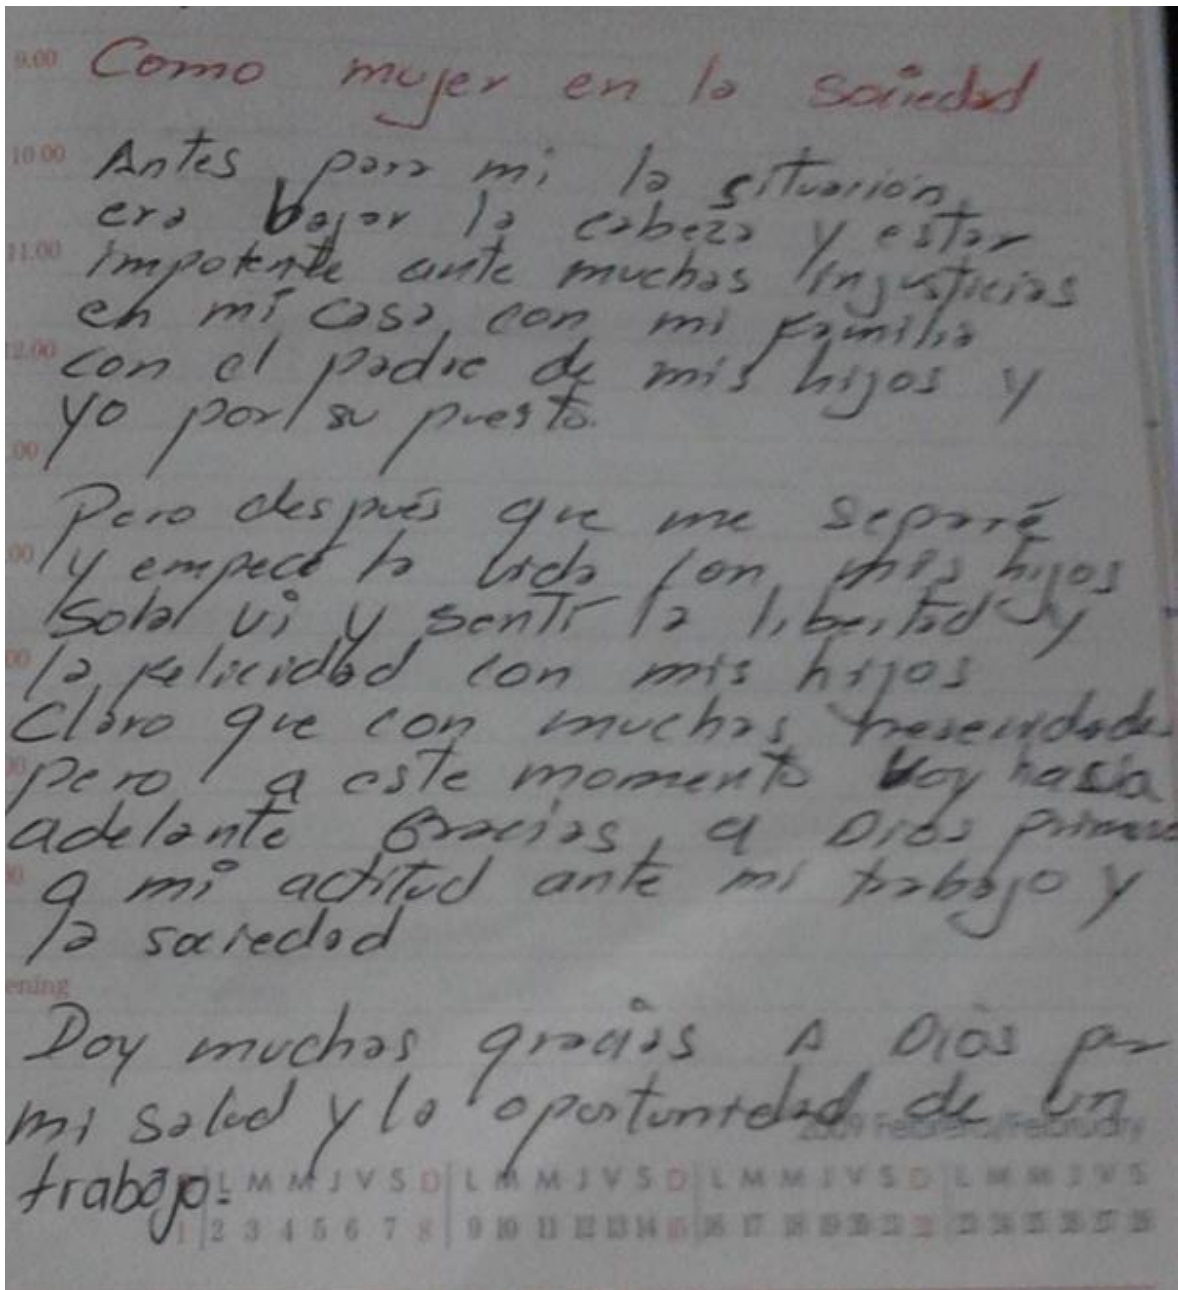 9.00 Como mujer en la sociedad
10.00 Antes para mi la situación
era bajar la cabeza y estar
11.00 impotente ante muchas injusticias
en mi casa, con mi familia
12.00 con el padre de mis hijos y
yo por su puesto.
.00
Pero después que me separé
00 y empecé la vida con mis hijos
sola vi y sentí la libertad y
00 la felicidad con mis hijos
Claro que con muchas
00 pero a este momento voy hasia
adelante Gracias a Dios primero
00 a mi actitud ante mi trabajo y
la sociedad
ening
Doy muchas gracias A Dios por
mi salud y la oportunidad de un
2009 Febrero/February
trabajo.
L M M J V S D L M M J V S D L M M J V S D L M M J V S
1 2 3 4 5 6 7 8 9 10 11 12 13 14 15 16 17 18 19 20 21 22 23 24 25 26 27 28